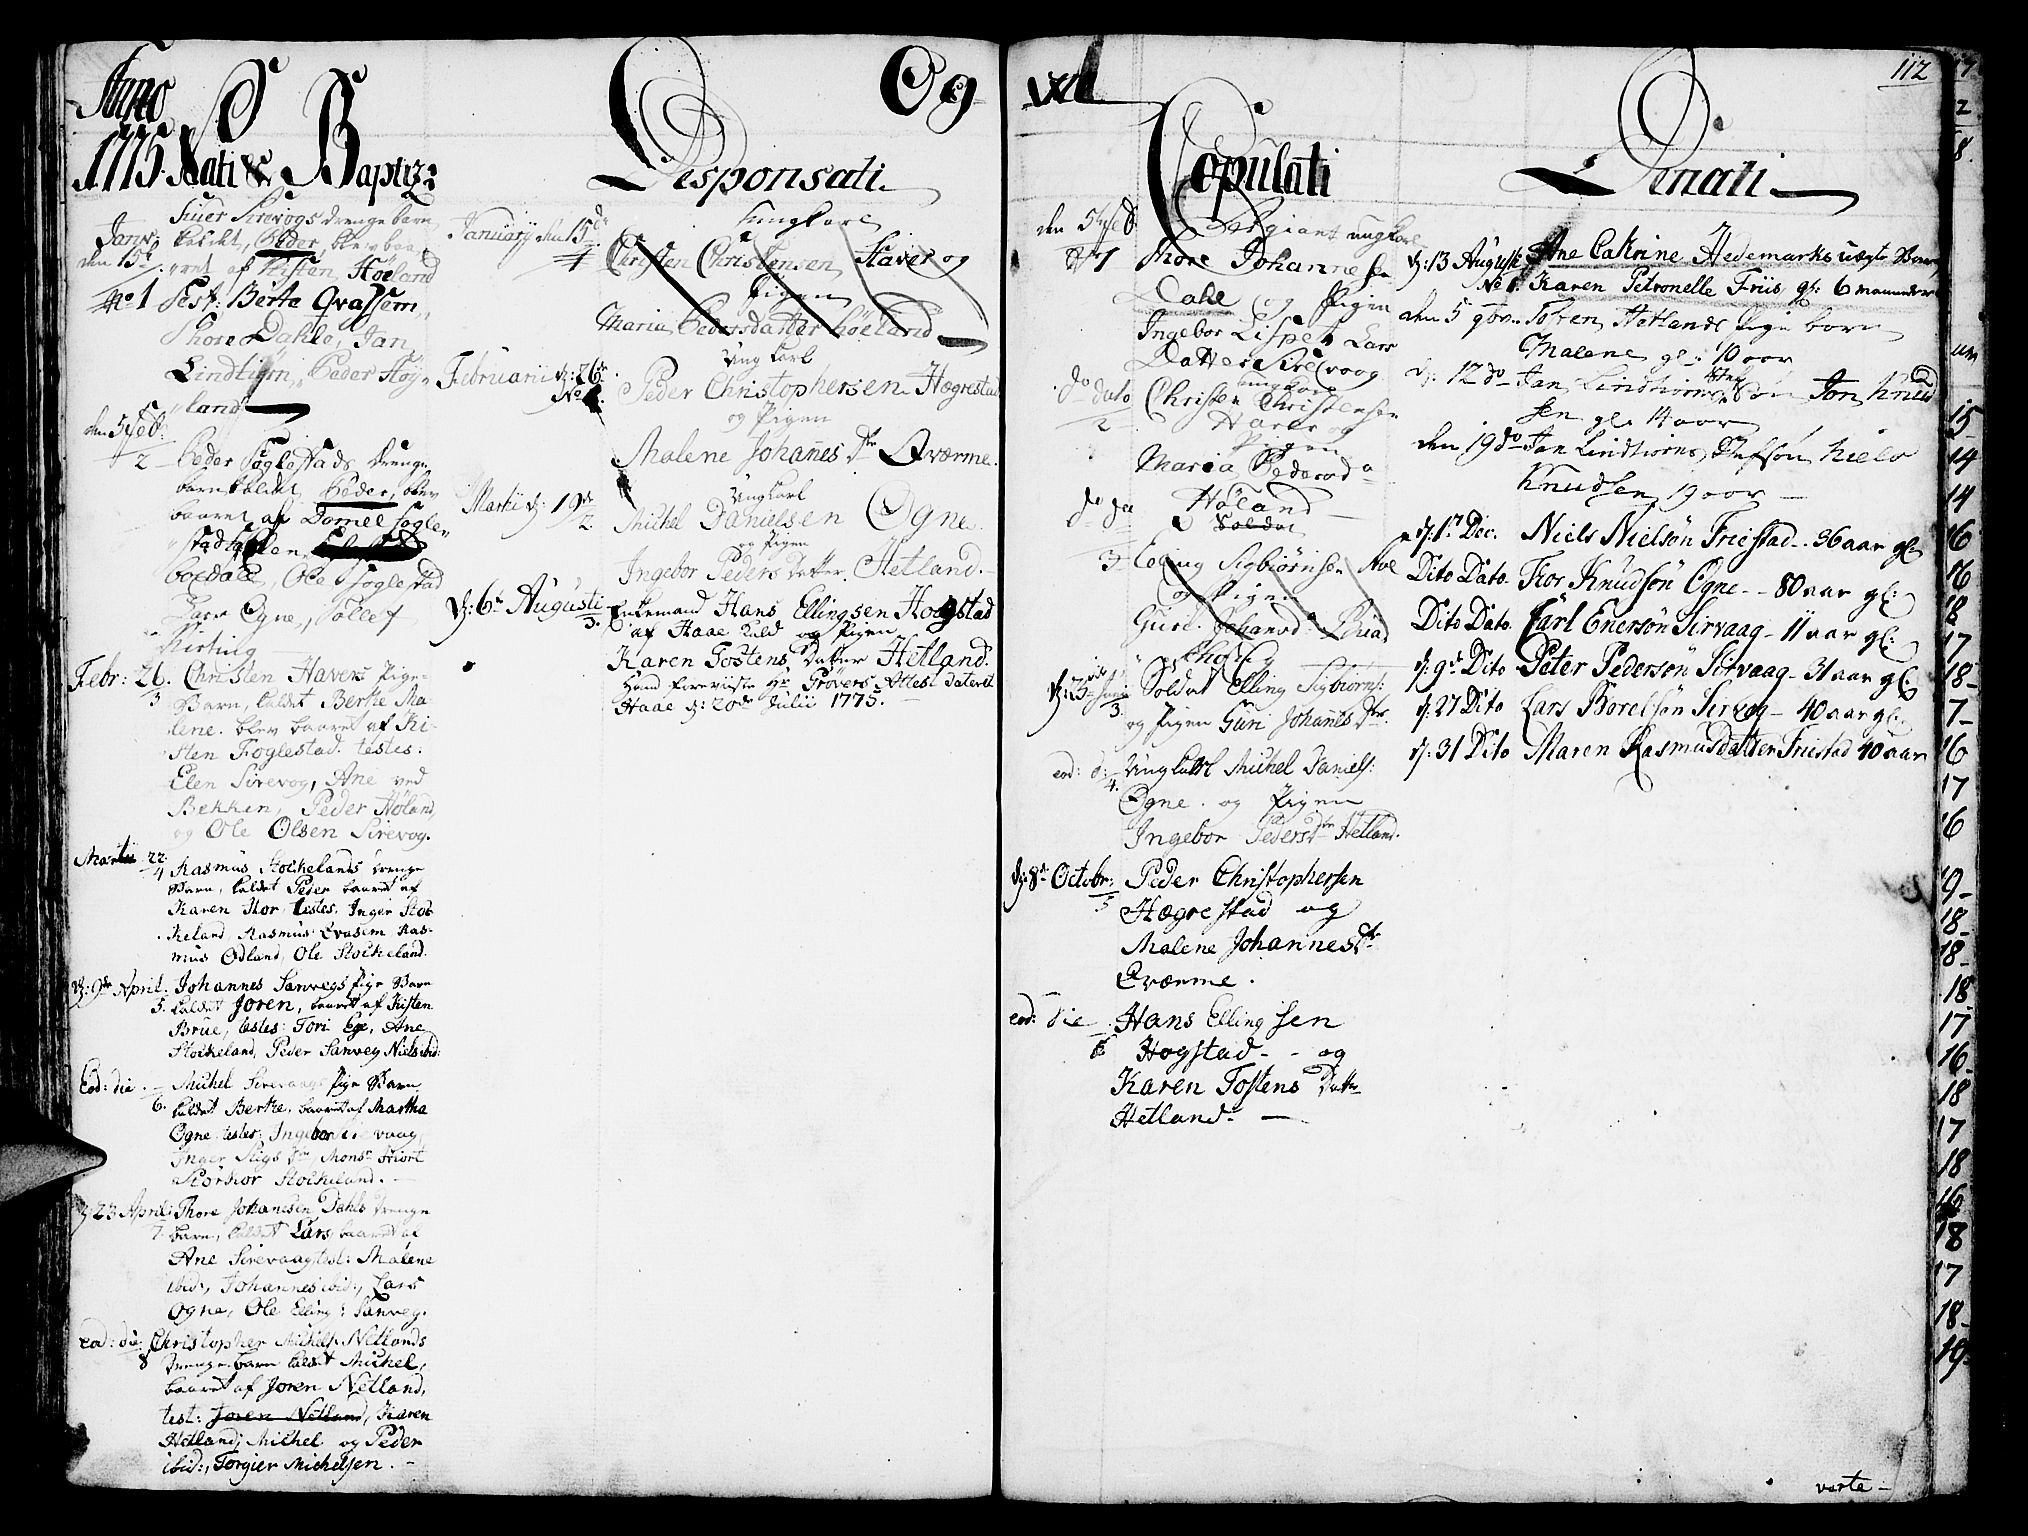 Anno
1775. Nati & Baptiz:
Janv:
den 15d
No 1
Siver Sirevogs drengebarn
kaldt, Peder, blev baa
ret af Kisten Höeland
Test: Berte Qvassem,
Thore Dahle, Jan
Lindtiørn, Peder Høy
land
den 5 Feb:
2
Peder Foglestads drenge
barn kaldet Peder, blev
baaret af Dorrel Fogle
stad
boedale, Ole Foglestad
Lars Ogne, Tollef
Kirting
Febr: 26.
3
Christen Havers Pige
Barn, kaldet Berthe Ma
lene. blev baaret af Ki
sten Foglestad. testes:
Elen Sirevog, Ane ved
Bekken, Peder Høland,
og Ole Olsen Sirevog.
Martii 22
4
Rasmus Stockelands drenge
Barn, kaldet Peder baaret af
Karen Stor testes. Inger Stoc
keland, Rasmus Qvasem Ras
mus Ødland, Ole Stockeland.
d: 9de April.
5.
Johannes Sanvegs pige Barn
kaldet Joren, baaret af Kisten
Brue, testes: Tori Ege, Ane
Stockeland, Peder Sanveg Niels ibid:
Eod: die.
6.
Michel Sirevaags pige Barn
kaldet Berthe, baaret af Martha
Ogne. testes: Ingebor Sirevaag,
Inger Stigs Dtr Mons Hiort
Stockeland.
d: 23 April:
7.
Thore Johansen Dahls drenge
barn, kaldet Lars, baaret af
Ane Sirevaag test: Malene
ibid:, Johannes ibid:, Lars
Ogne, Ole Elling: Sanveg.
eod: die:
8
Christopher Michels: Netlands
drenge barn kaldet Michel,
baaret af Joren Netland,
test: Joren Netland, Karen
Hetland, Michel og Peder
ibid:, Torgier Michelsen.
Desponsati
Og
Januarij den 15d
1
ungkarl
Christen Christensen Haver og
Pigen
Maria Pedersdatter Höeland
Februarii d: 26de
No
Ung karl
Peder Christophersen Hegrestad
og Pigen
Malene Johanes Dtr Qværme.
Martii d: 19de
2.
Ung karl
Michel Danielsen Ogne.
og Pigen
Ingebor Peders Datter Hetland.
d: 6te Augusti
3.
Enkemand Hans Ellingsen Hogstad
af Haae kild og Pigen
Karen Tostens Datter Hetland.
Hand foreviiste Hr Provers Attest dateret
Haae d: 20de Julii 1775.
112
Copulati
den 5 Feb
No 1
Sergiant ungkarl
Thore Johannesen
Dahl og Pigen
Ingebor Lisbet Lars
Datter Sirevaag
do dato
2
ungkarl
Christen Christensen
Haver og
Pigen
Maria Pedersd
Höland
do do
3
Soldat
Elling Sigbiørnsen Ave
og Pigen
Guri Johansd: Bruad
3.
Soldat Elling Sigbiørns:
og Pigen Guri Johannis Dtr.
eod: d:
4.
Ung karl Michel Daniels:
Ogne og Pigen
Ingebor Peders Dtr Hetland.
d: 8de Octobr:
5
Peder Christophersen
Hægrestad og
Malene Johannes Dtr
Qværme.
eod: die
6
Hans Ellingsen
Hogstad - - og
Karen Tostens Datter
Hetland.
Denati
d: 13 August
No 1.
Ane Catrine Hedemarks uægte Barn
Karen Petronelle Friis gl: 6 maaneder
den 5 9bv. Toren Hetlands Pige barn
Malene gl: 10 aar
d: 12 do Jan Lindtiørns Stif Søn Jon Knud
sen gl. 14 aar
den 19 do Jan Lindtiørns, Stifsön Niels
Knudsen, 19 aar
d: 1st Dec. Niels Nielsön Friestad. 96 aar gl:
Dito Dato. Tor Knudsön Ogne - - 80 aar gl:
Dito Dato. Carl Enersön Sirvaag - 11 aar gl:
d: 9de Dito Peter Pedersön Sirvaag - 31 aar gl:
d: 27 Dito Lars Borelsön Sirvog - 40 aar gl:
d: 31 Dito Maren Rasmusdatter Friestad 40 aar
verte